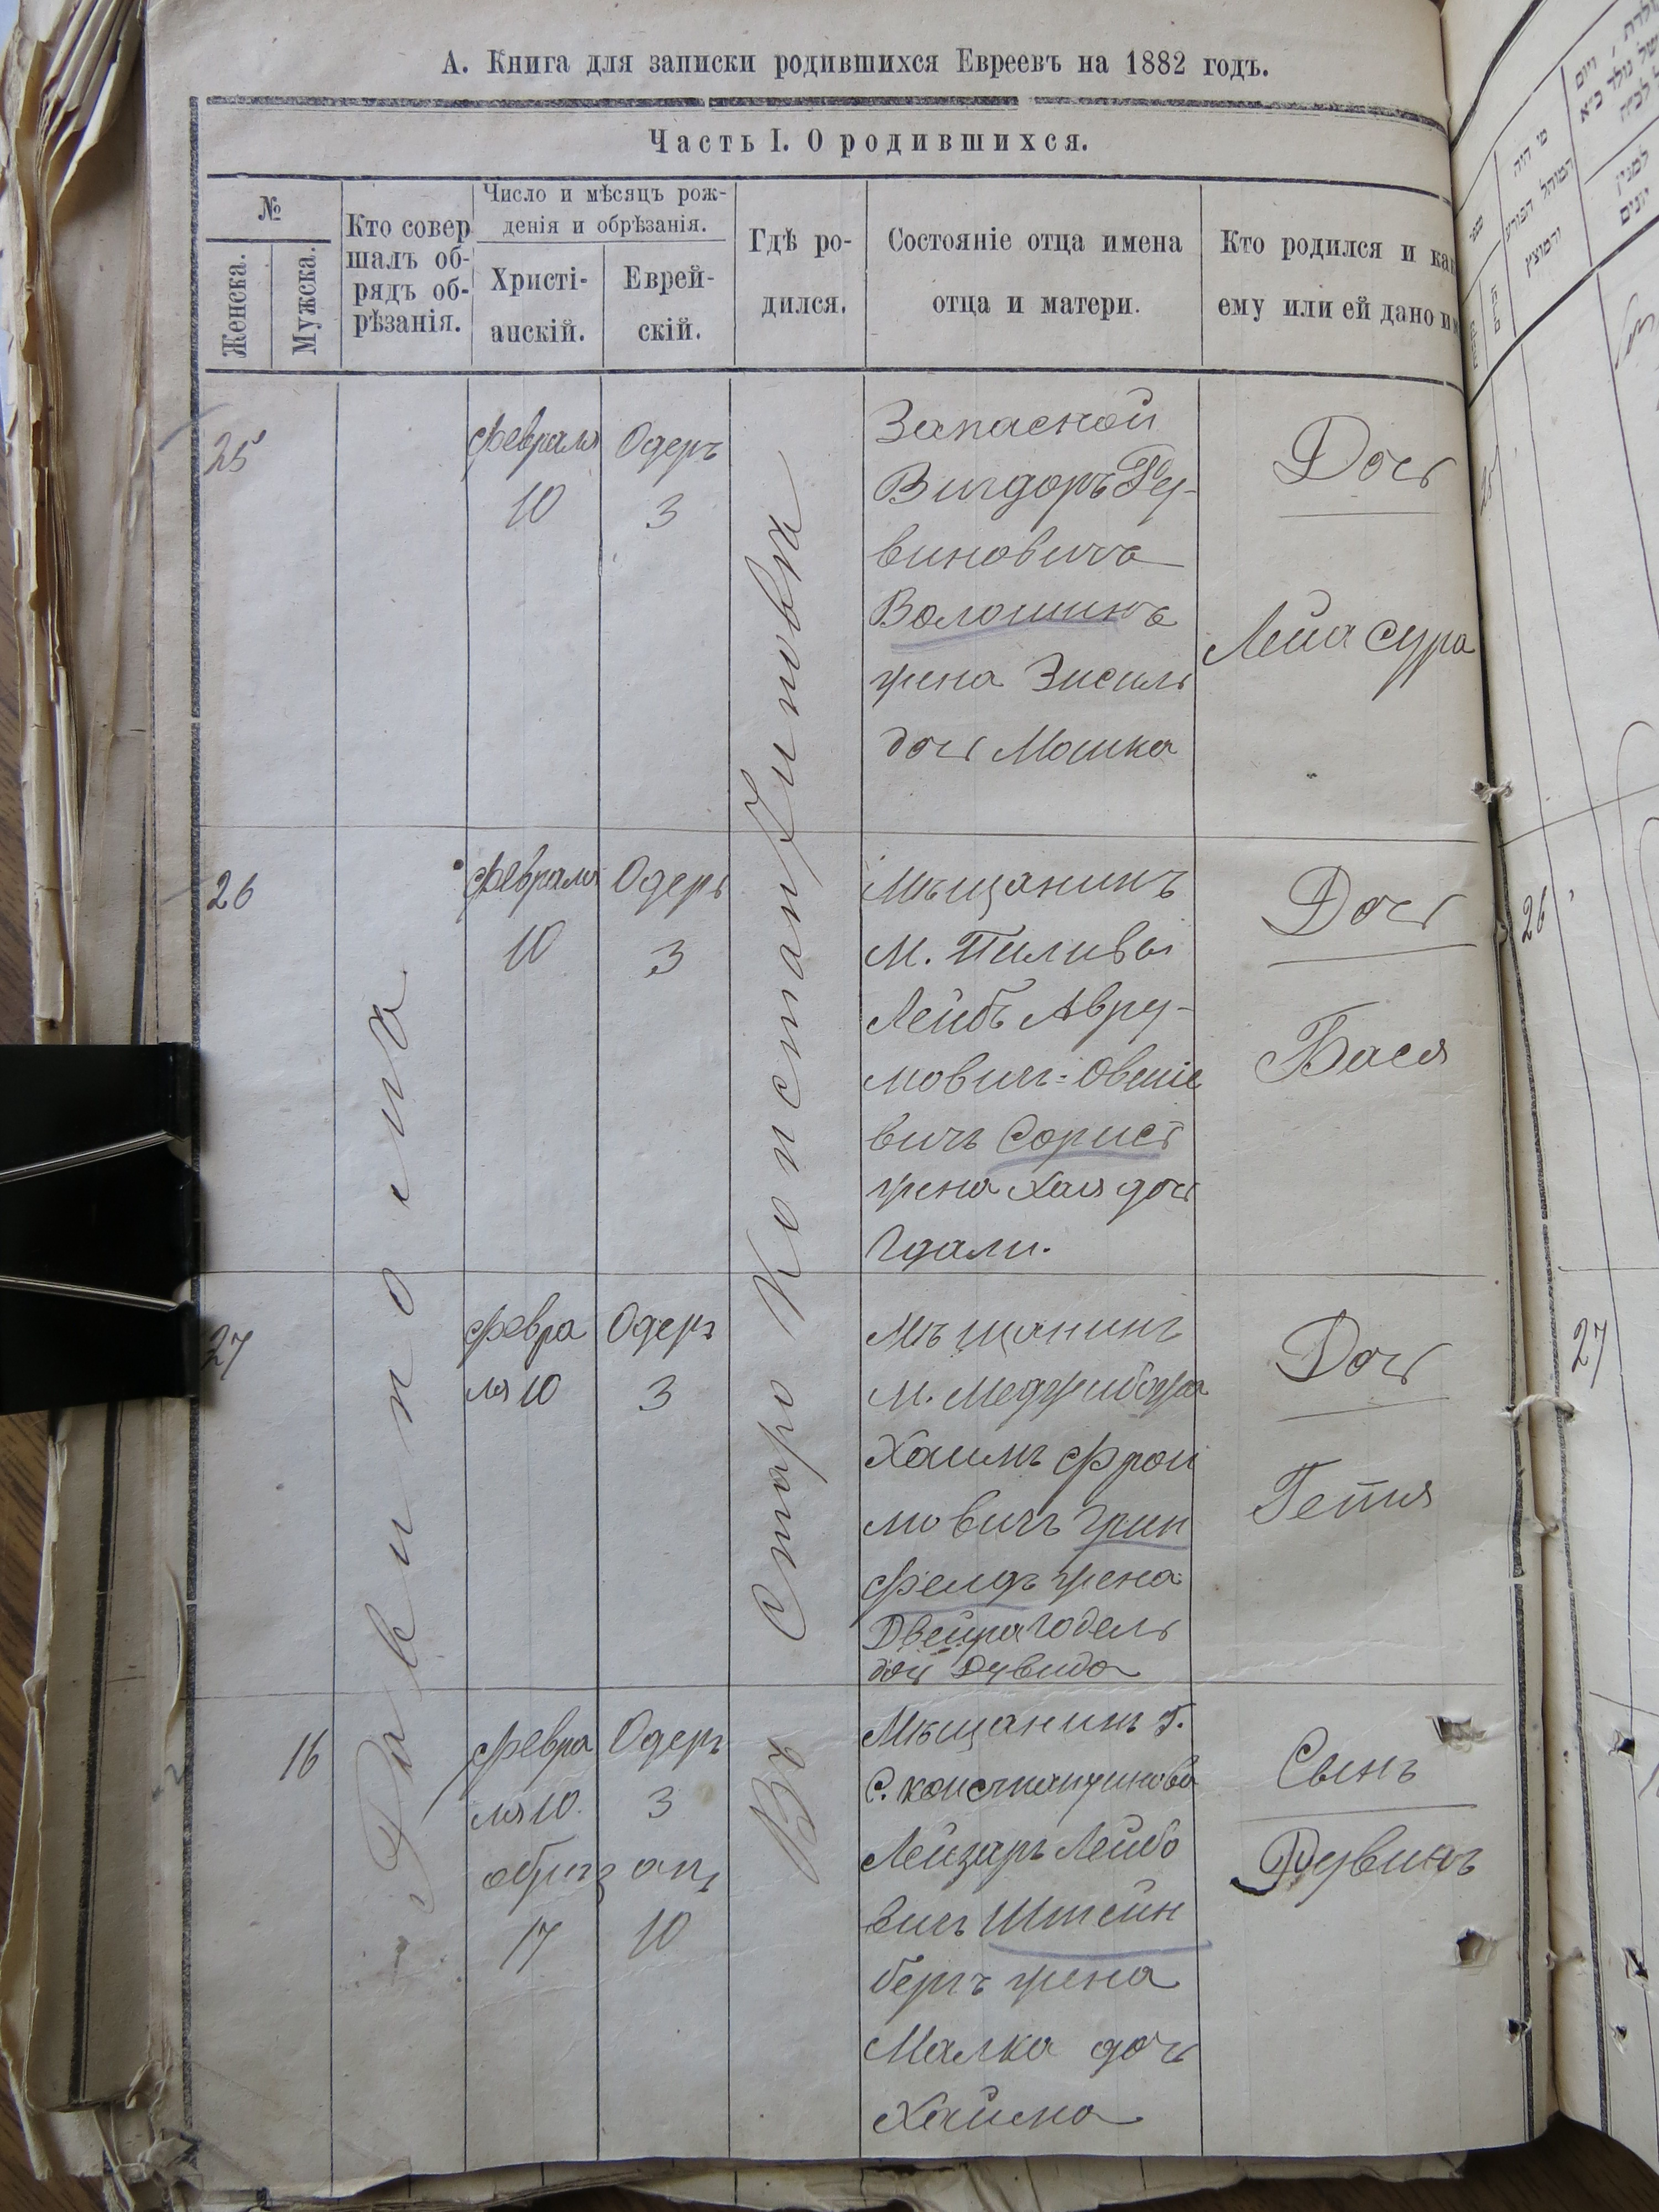 А. Книга для записки родившихся Евреевъ на 1882 годъ.
Часть I. О родившихся.
№
Женска.
Мужска.
Кто совер
шалъ об-
рядъ об-
рѣзанія.
Число и мѣсяцъ рож-
денія и обрѣзанія.
Христі-
анскій.
Еврей-
скій.
Гдѣ ро-
дился.
Состояніе отца имена
отца и матери.
Кто родился и как
ему или ей дано им
Въ Старо Константиновка
25
февраля
10
Одеръ
3
Запасной
Вигдоръ Ру-
виновичъ
Волошинъ
жена Зисель
дочь Мошка
Дочь
Лейа Сура
26
февраля
10
Одеръ
3
Мѣщанинъ
М. Пилявы
Лейбъ Авру-
мович-Овшіе
вичъ
жена Хая дочь
Гдали.
Дочь
Бася
27
февра
ля 10
Одеръ
3
Мѣщанинъ
М. Меджибожа
Хаимъ Фрои
мовичъ Грин
фелдъ жена
Двейра Годель
дочь Дувида
Дочь
Гетя
16
февра
ля 10.
Одеръ
3
обрѣзанъ
17
10
Мѣщанинъ г.
С. константинова
Лейзаръ Лейбо
вичъ Штейн
бергъ жена
Малка дочь
Хаима
Сынъ
Рувинъ
25
26
27